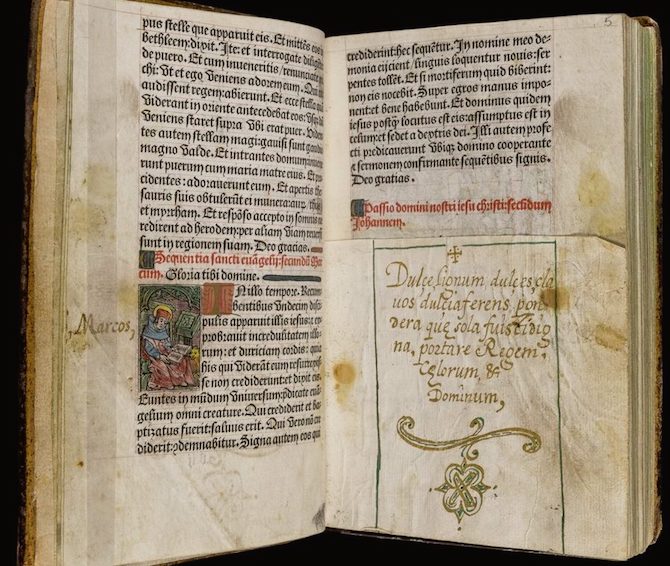 pus stelle que apparuit eis. Et mittēs eos i
bethleem: dixit. Ite: et interrogate diligē
de puero. Et cum inueneritis / renunciate
chi: vt et ego veniens adorem eum. Qui
audissent regem: abierunt. Et ecce stella quā
viderant in oriente antecedebat eos: vsq̄ dū
veniens staret supra vbi erat puer. Viden
tes autem stellam magi: gauisi sunt gaudio
magno valde. Et intrantes domum: inuene
runt puerum cum maria matre eius. Et pro
cidentes: adorauerunt eum. Et apertis the
sauris suis obtulerūt ei munera: aurū. thus
et myrrham. Et respōso accepto in somnis ne
redirent ad herodem: per aliam viam reuer
sunt in regionem suam. Deo gratias.
Sequentia sancti euāgelij: secundū Mar
cum. Gloria tibi domine.
Marcos,
IN illo tempore. Recum
bentibus vndecim disci
pulis apparuit illis iesus: et ex
probrauit incredulitatem illo
rum: et duriciam cordis: quia
his qui viderāt eum resurrexis
se non crediderunt: et dixit eis.
Euntes in mūdum vniuersum: predicate euā
gelium omni creature. Qui crediderit et ba
ptizatus fuerit: saluus erit. Qui vero nō cre
diderit: ɔdemnabitur. Signa autem eos qui
5
crediderint: hec sequētur. In nomine meo de-
monia eijcient / linguis loquentur nouis: ser
pentes tollēt. Et si mortiferum quid biberint:
non eis nocebit. Super egros manus impo-
nent: et bene habebunt. Et dominus quidem
iesus postq̄ locutus est eis: assumptus est in
celum: et sedet a dextris dei. Illi autem profe
cti predicauerunt vbiq̄: domino cooperante
et sermonem confirmante sequētibus signis.
Deo gratias.
Passio domini nostri iesu christi: secūdum
Johannem.
Dulce lignum dulces cla
vos dulcia ferens pon
dera que sola fuisti dig
na, portare Regem,
Celorum, &
Dominum,